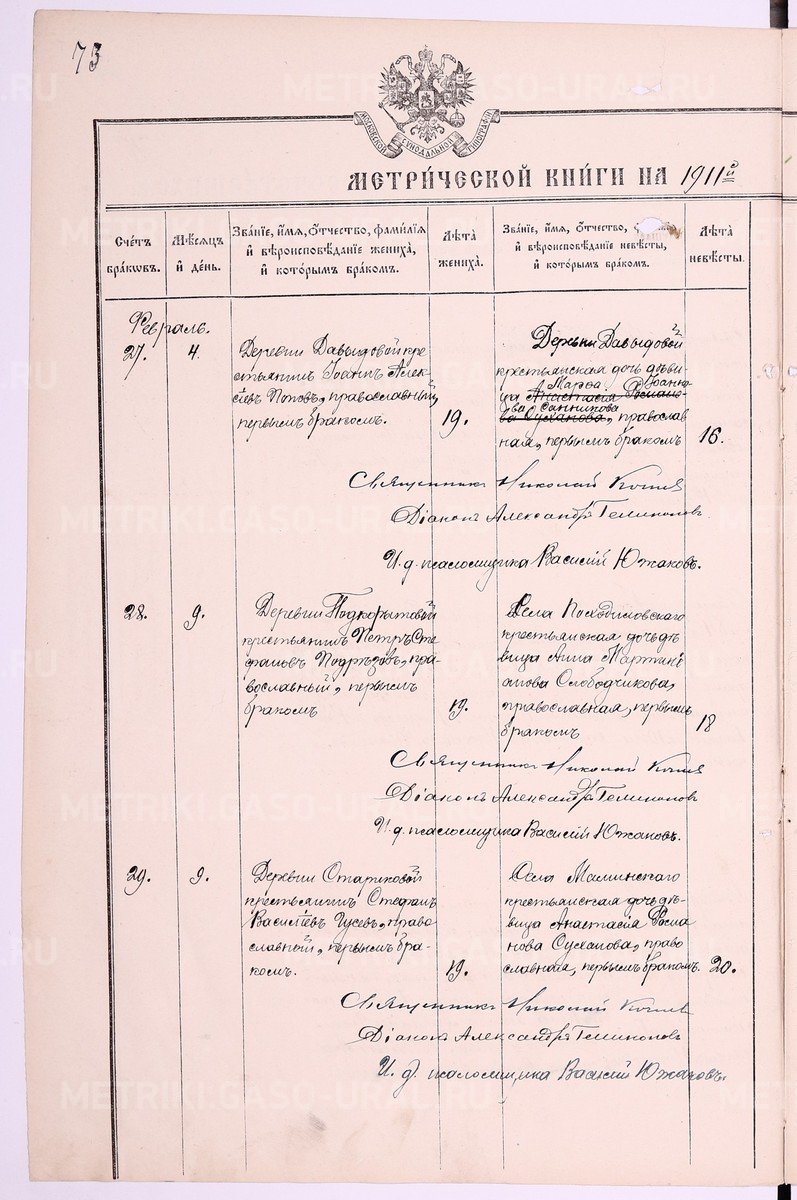 73
МОСКОВСКОЙ СѴНОДАЛЬНОЙ ТИПОГРАФІИ
МЕТРИ́ЧЕСКОЙ КНИ́ГИ НА 1911й
Сче́тъ бра́кωвъ.
Мѣ́сяцъ и҆ де́нь.
Зва́нїе, и҆́мя, ѻ҆́тчество, фамилїя и҆ вѣроисповѣ́данїе жениха̀, и҆ кото́рымъ бра́комъ.
Лѣ́та жениха̀.
Зва́нїе, и҆́мя, ѻ҆́тчество, и҆ вѣроисповѣ́данїе невѣ́сты, и҆ кото́рымъ бра́комъ.
Лѣ́та невѣ́сты.
Февраль.
27.
4.
Деревни Давыдовой кре
стьянинъ Іоаннъ Алек
сѣевъ Поповъ, православный,
первымъ бракомъ.
19.
Деревни Давыдовой
крестьянская дочь дѣви-
ца Анастасія Романо-
Марѳа Іоанно
ва Суханова,
ва Санникова
православ
ная, первымъ бракомъ
16.
Священникъ Николай
Діаконъ Александръ
И. д. псаломщика Василій Южаковъ.
28.
9.
Деревни Подкорытовой
крестьянинъ Петръ Сте
фановъ Подрѣзовъ, пра-
вославный, первымъ
бракомъ
19.
Села
крестьянская дочь дѣ
вица Анна Мартині
анова Слободчикова,
православная, первымъ
бракомъ
18
Священникъ Николай
Діаконъ Александръ
И. д. псаломщика Василій Южаковъ.
29.
9.
Деревни Стариковой
крестьянинъ Стефанъ
Васильевъ Гусевъ, право
славной, первымъ бра-
комъ.
19.
Села Маминскаго
крестьянская дочь дѣ-
вица Анастасія Рома
нова Суханова, право
славная, первымъ бракомъ.
20.
Священникъ Николай
Діаконъ Александръ
И. д. псаломщика Василій Южаковъ.
METRIKI.GASO-URAL.RU